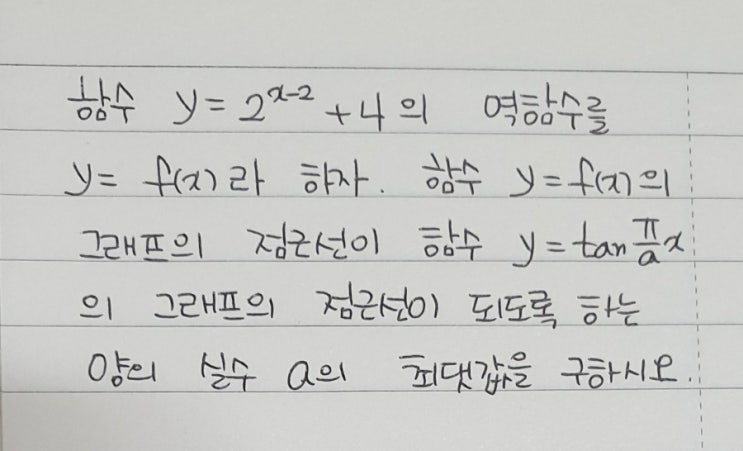 함수 y = 2^{x-2} + 4 의 역함수를
y = f(x) 라 하자. 함수 y = f(x) 의
그래프의 점근선이 함수 y = tan \frac{π}{a} x
의 그래프의 점근선이 되도록 하는
양의 실수 a의 최댓값을 구하시오.